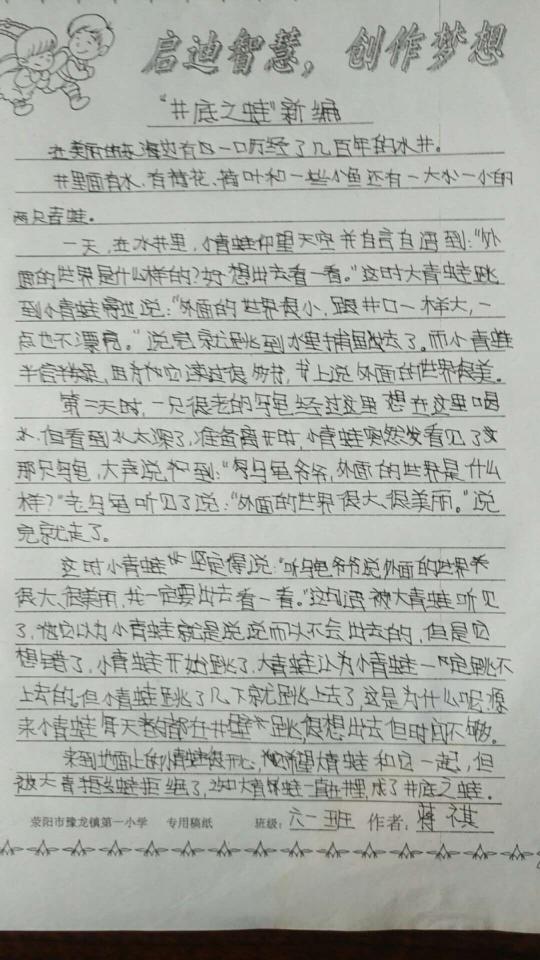 启迪智慧，创作梦想
“井底之蛙”新编
在美丽的海边有一口历经了几百年的水井。
井里面有水、有荷花、荷叶和一些小鱼还有一大一小的
两只青蛙。
一天，在水井里，小青蛙仰望天空并自言自语到：“外
面的世界是什么样的？好想出去看一看。”这时大青蛙跳
到小青蛙旁边说：“外面的世界很小，跟井口一样大，一
点也不漂亮。”说完就跳到水里捕鱼去了。而小青蛙
半信半疑，因为它读过很多书，书上说外面的世界很美。
第二天时，一只很老的乌龟经过这里想在这里喝
水.但看到水太深了，准备离开时，小青蛙突然发看见了
那只乌龟，大声说到：“乌龟爷爷，外面的世界是什么
样？”老乌龟听见了说：“外面的世界很大、很美丽。”说
完就走了。
这时小青蛙坚定得说：“听乌龟爷爷说外面的世界
很大、很美丽，我一定要出去看一看。”这句话被大青蛙听见
了，它以为小青蛙就是说说而以不会出去的，但是它
想错了，小青蛙开始跳了，大青蛙认为小青蛙一定跳不
上去的。但小青蛙跳了几下就跳上去了，这是为什么呢？原
来小青蛙每天都在井壁跳，很想出去但时间不够。
来到地面上的小青蛙很开心，希望大青蛙和它一起，但
被大青蛙拒绝了，大青蛙一直在井里，成了井底之蛙。
荥阳市豫龙镇第一小学 专用稿纸 班级：六一班 作者：蒋祺